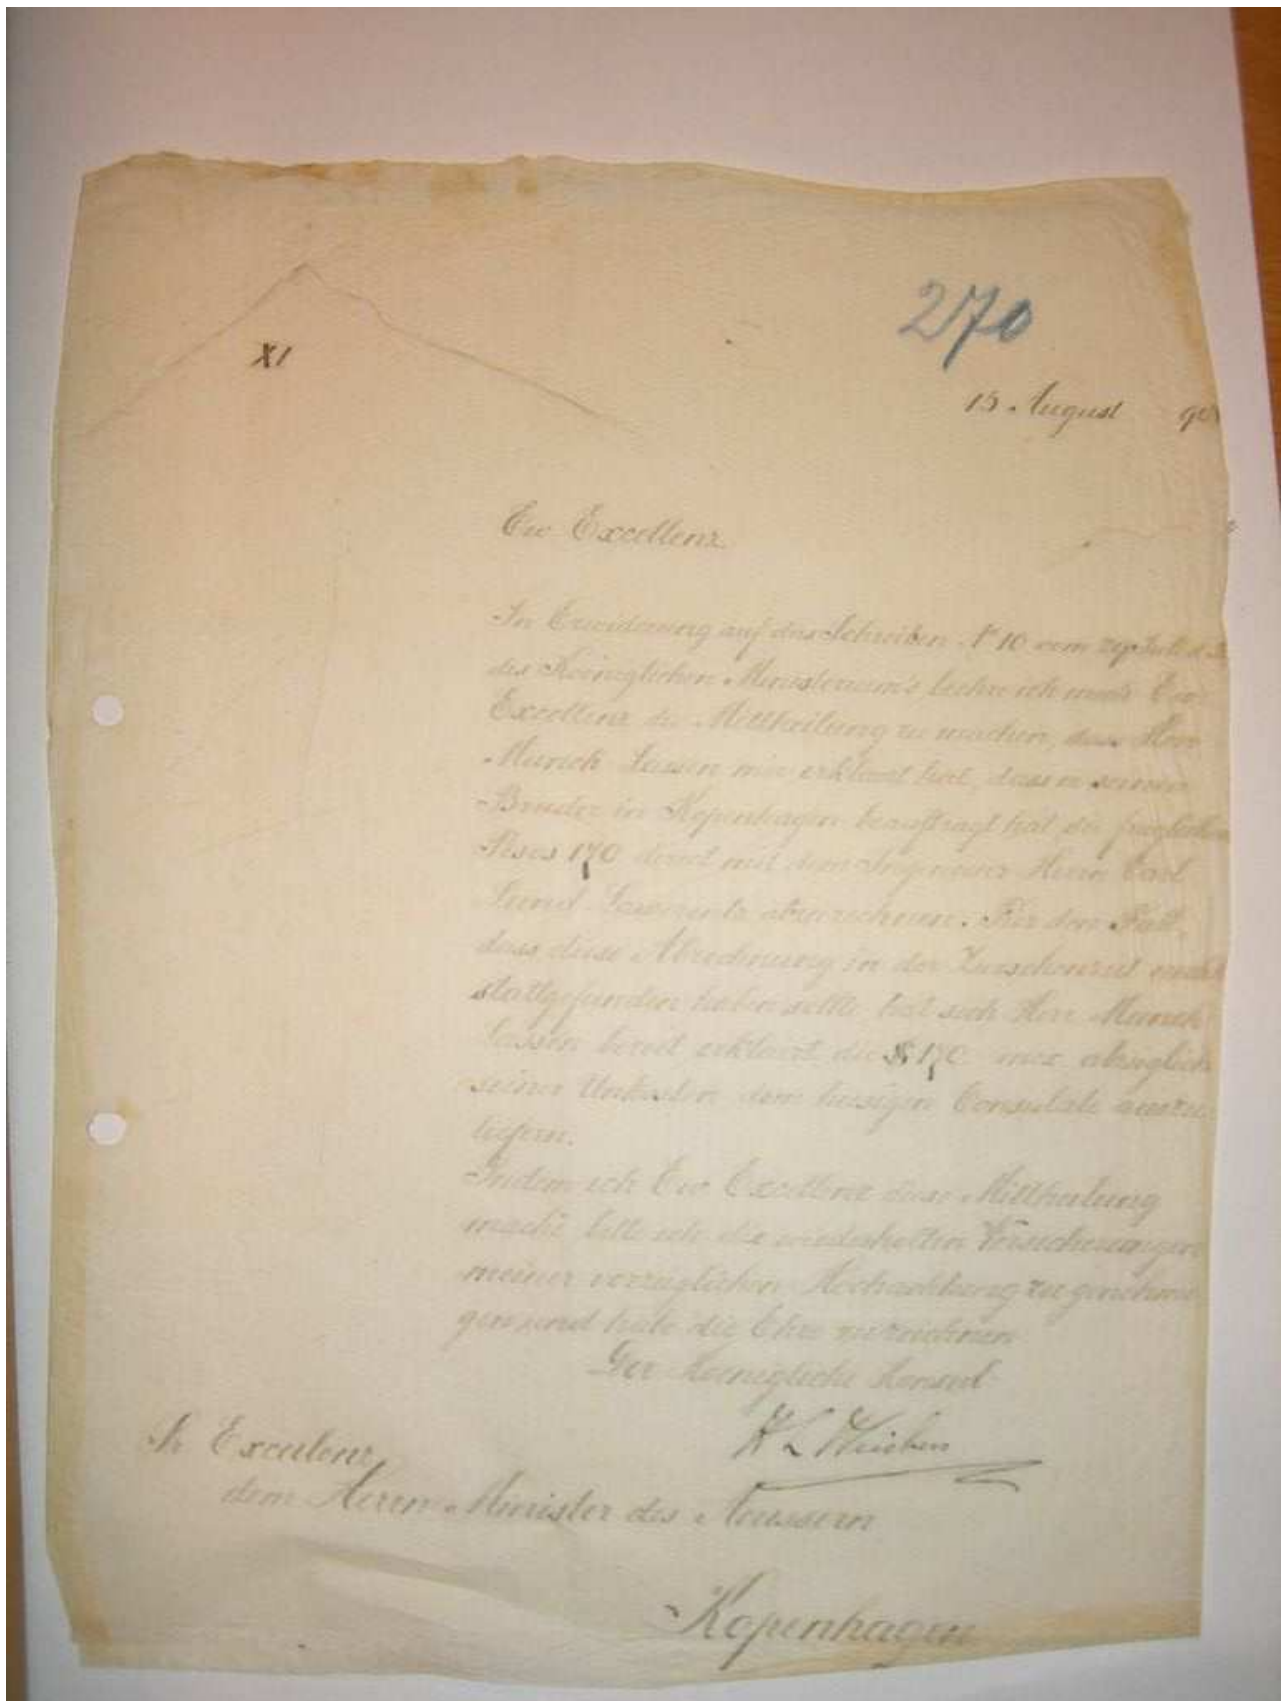 270
XI
15 August 90
Ew Excellenz
In Erwiderung auf das Schreiben No 10 vom 29 Juli d. J.
des Koeniglichen Ministerium's beehre ich mich Ew
Excellenz die Mittheilung zu machen, dass Herr
Munch Lassen mir erklaert hat, dass er seinen
Bruder in Kopenhagen beauftragt hat die fraglichen
Pesos 170 direct mit dem Ingenieur Herrn Carl
Lund abzurechnen. Für den Fall,
dass diese Abrechnung in der Zwischenzeit nicht
stattgefunden haben sollte, hat sich Herr Munch
Lassen bereit erklaert die $ 170 mex abzüglich
seiner Unkosten dem hiesigen Consulate auszu
liefern.
Indem ich Ew Excellenz diese Mittheilung
mache bitte ich die wiederholten Versicherungen
meiner vorzüglichen Hochachtung zu genehmi
gen und habe die Ehre zu zeichnen
Der Koenigliche Konsul
Sr Excellenz
dem Herrn Minister des Aeussern
Kopenhagen